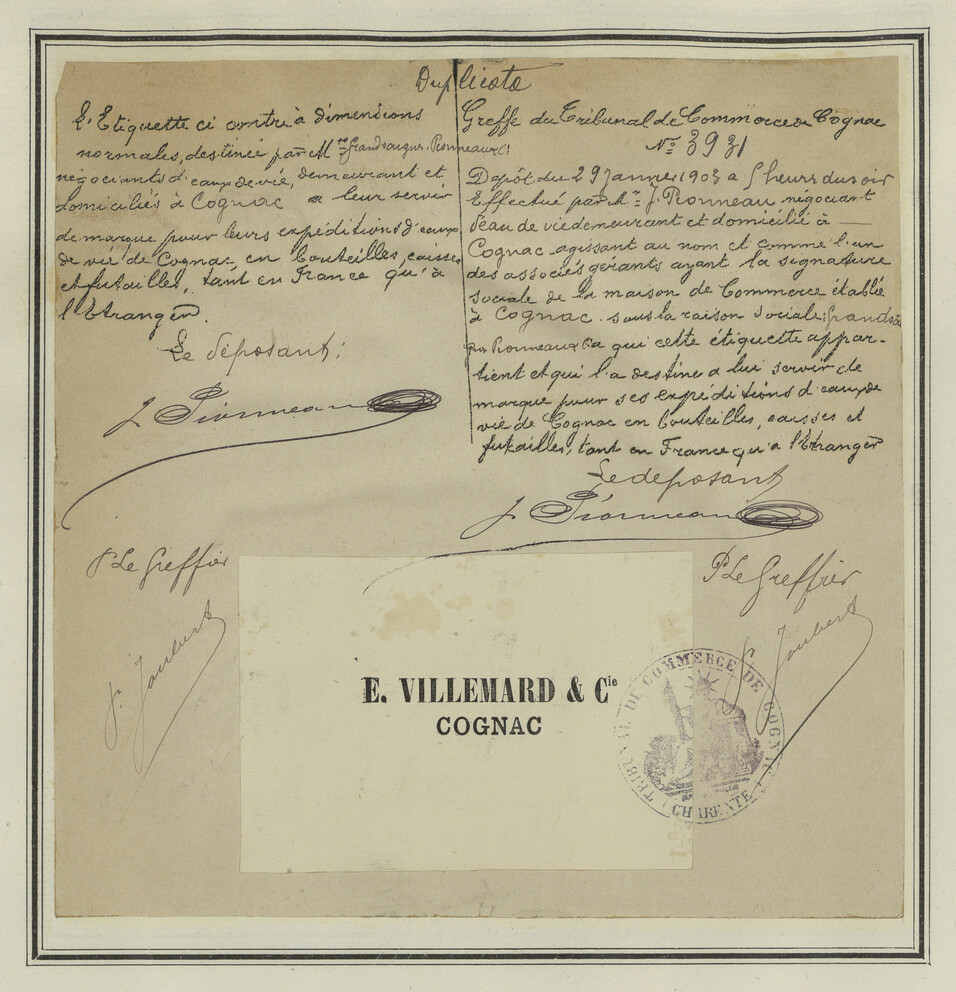 Duplicata
L'Etiquette ci contre à dimensions
normales, destinée par M.rs
négociants d'eaux de vie, demeurant et
domiciliés à Cognac a leur servir
de marque pour leurs expéditions d'eaux
de vie de Cognac en bouteilles, caisses
et futailles, tant en France qu'à
l'Etranger.
Le déposant:
P Le Greffier
Joubert
Greffe du Tribunal de Commerce de Cognac
No 3931
Dépôt du 29 Janvier 1903 a 5 heurs du soir
Effectué par Mr J. Pionneau négociant
d'eau de vie demeurant et domicilié à
Cognac agissant au nom et comme l'un
des associés gérants ayant la signature
sociale de la maison de Commerce établie
à Cognac sous la raison sociale:
a qui cette étiquette appar-
tient et qui l'a destine a lui servir de
marque pour ses expéditions d'eaux de
vie de Cognac en bouteilles, caisses et
futailles, tant en France qu'a l'Etranger
Le deposant
J. Pionneau
P Le Greffier
Joubert
E. VILLEMARD & Cie
COGNAC
TRIBUNAL DE COMMERCE DE COGNAC
CHARENTE